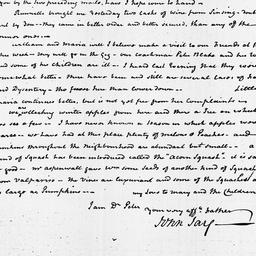 by the two preceding mails, I hope come to hand —
Rumsell brought us yesterday two Casks of Wine from Sinsing. don't
by Don — They came in better order and better secured, than any of the
former ones —
William and Maria will I believe make a visit to our Friends at
this week — They will go in the Gig. — our Coachman Peter Blake and his
and some of his children are ill — I heard last Evening that they were
somewhat better — There have been and still are several cases of
and Dysentery — tho fewer here than lower down — Little
Maria continues better, but is not yet free from her complaints —
We are collecting winter apples from here and there a tree on which
is a few — I have never known a Season in which apples were
rare — we have had at this place plenty of melons & Peaches — and
Pumkins throughout the neighbourhood are abundant but small — a
kind of Squash has been introduced called the "Acorn Squash" it is
good — Mr. aspenwall gave us some seeds of another kind of Squash
from Valparaiso — the Vines are luxuriant and some of the Squashes
as large as Pumpkins — my love to Mary and the Children
I am Dr. Peter
Your very affte. Father
John Jay